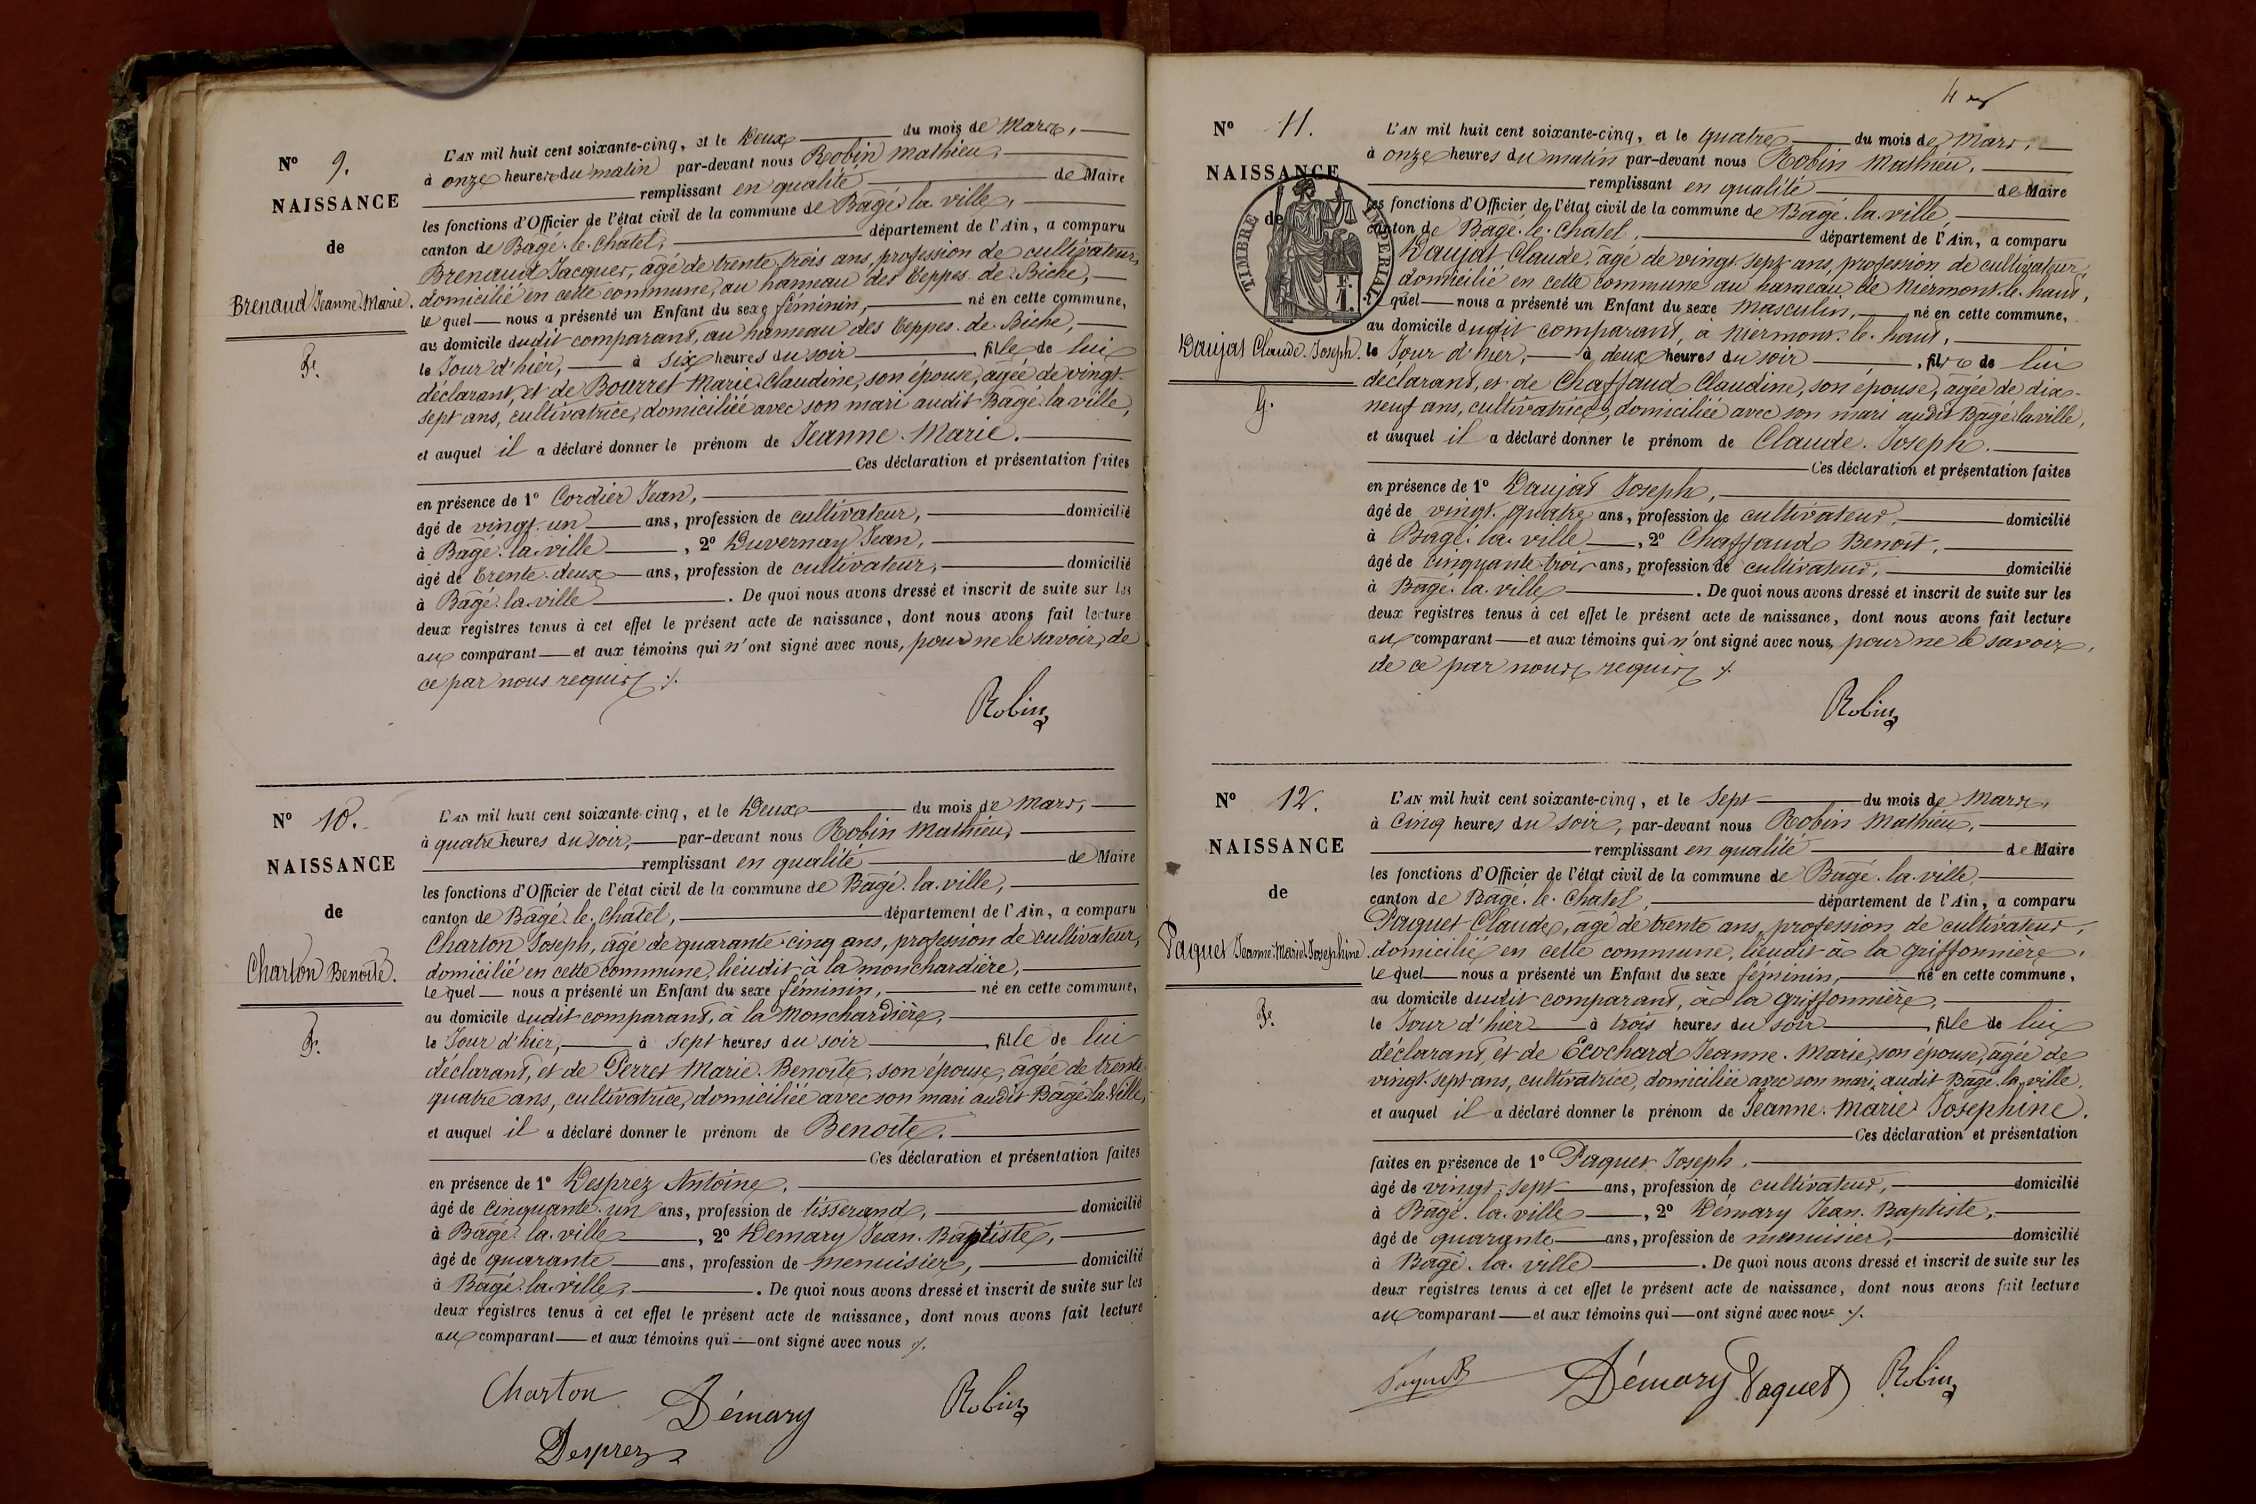 N° 9.
NAISSANCE
de
Brenaud Jeanne-Marie.
F.
L'AN mil huit cent soixante-cinq, et le Deux du mois de Mars,
à onze heures du matin par-devant nous Robin Mathieu,
remplissant en qualité de Maire
les fonctions d'Officier de l'état civil de la commune de Bâgé-la-ville,
canton de Bâgé-le-Chatel, département de l'Ain, a comparu
Brenaud Jacques, âgé de trente-trois ans, profession de cultivateur,
domicilié en cette commune, au hameau des Teppes-de-Biche,
le quel nous a présenté un Enfant du sexe féminin, né en cette commune,
au domicile dudit comparant, au hameau des Teppes-de-Biche,
le Jour d'hier, à six heures du soir, fille de lui
déclarant, et de Bourret Marie-Claudine, son épouse, agée de vingt-
sept ans, cultivatrice, domiciliée avec son mari audit Bâgé-la-ville,
et auquel il a déclaré donner le prénom de Jeanne-Marie.
Ces déclaration et présentation faites
en présence de 1° Cordier Jean,
âgé de vingt-un ans, profession de cultivateur, domicilié
à Bâgé-la-ville, 2° Duvernay Jean,
âgé de trente-deux ans, profession de cultivateur, domicilié
à Bâgé-la-ville. De quoi nous avons dressé et inscrit de suite sur les
deux registres tenus à cet effet le présent acte de naissance, dont nous avons fait lecture
au comparant et aux témoins qui n'ont signé avec nous, pour ne le savoir, de
ce par nous requis ./.
Robin
N° 10.
NAISSANCE
de
Charton Benoîte.
F.
L'AN mil huit cent soixante-cinq, et le Deux du mois de Mars,
à quatre heures du soir, par-devant nous Robin Mathieu,
remplissant en qualité de Maire
les fonctions d'Officier de l'état civil de la commune de Bâgé-la-ville,
canton de Bâgé-le-Chatel, département de l'Ain, a comparu
Charton Joseph, âgé de quarante-cinq ans, profession de cultivateur,
domicilié en cette commune, lieudit à la monchardière,
le quel nous a présenté un Enfant du sexe féminin, né en cette commune,
au domicile dudit comparant, à la Monchardière,
le Jour d'hier, à sept heures du soir, fille de lui
déclarant, et de Perret Marie-Benoîte, son épouse, âgée de trente-
quatre ans, cultivatrice, domiciliée avec son mari audit Bâgé-la-Ville,
et auquel il a déclaré donner le prénom de Benoîte.
Ces déclaration et présentation faites
en présence de 1° Desprez Antoine,
âgé de cinquante-un ans, profession de tisserand, domicilié
à Bâgé-la-ville, 2° Demary Jean-Baptiste,
âgé de quarante ans, profession de menuisier, domicilié
à Bâgé-la-ville. De quoi nous avons dressé et inscrit de suite sur les
deux registres tenus à cet effet le présent acte de naissance, dont nous avons fait lecture
au comparant et aux témoins qui ont signé avec nous ./.
Charton Démary Robin
Desprez
4
N° 11.
NAISSANCE
de
TIMBRE IMPERIAL
Daujat Claude-Joseph.
g.
L'AN mil huit cent soixante-cinq, et le quatre du mois de Mars,
à onze heures du matin par-devant nous Robin Mathieu,
remplissant en qualité de Maire
les fonctions d'Officier de l'état civil de la commune de Bâgé-la-ville
canton de Bâgé-le-Chatel, département de l'Ain, a comparu
Daujat Claude, âgé de vingt-sept ans, profession de cultivateur,
domicilié en cette commune au hameau de Niermont-le-haut,
quel nous a présenté un Enfant du sexe masculin, né en cette commune,
au domicile dudit comparant, à Niermont-le-haut,
le Jour d'hier, à deux heures du soir, fils de lui
déclarant, et de Chaffaud Claudine, son épouse, âgée de dix-
neuf ans, cultivatrice, domiciliée avec son mari audit Bâgé-la-ville,
et auquel il a déclaré donner le prénom de Claude-Joseph.
Ces déclaration et présentation faites
en présence de 1° Daujat Joseph,
âgé de vingt-quatre ans, profession de cultivateur, domicilié
à Bâgé-la-ville, 2° Chaffaud Benoit,
âgé de cinquante-trois ans, profession de cultivateur, domicilié
à Bâgé-la-ville. De quoi nous avons dressé et inscrit de suite sur les
deux registres tenus à cet effet le présent acte de naissance, dont nous avons fait lecture
au comparant et aux témoins qui n'ont signé avec nous, pour ne le savoir,
de ce par nous requis ./.
Robin
N° 12.
NAISSANCE
de
Paquet Jeanne-Marie-Josephine.
F.
L'AN mil huit cent soixante-cinq, et le Sept du mois de Mars,
à cinq heures du soir, par-devant nous Robin Mathieu,
remplissant en qualité de Maire
les fonctions d'Officier de l'état civil de la commune de Bâgé-la-ville
canton de Bâgé-le-Chatel, département de l'Ain, a comparu
Paquet Claude, âgé de trente ans, profession de cultivateur,
domicilié en cette commune, lieudit à la griffonnière,
le quel nous a présenté un Enfant du sexe féminin, né en cette commune,
au domicile dudit comparant, à la griffonnière,
le Jour d'hier à trois heures du soir, fille de lui
déclarant, et de Ecochard Jeanne-Marie, son épouse, âgée de
vingt-sept ans, cultivatrice, domiciliée avec son mari, audit Bâgé-la-ville,
et auquel il a déclaré donner le prénom de Jeanne-Marie Josephine.
Ces déclaration et présentation
faites en présence de 1° Paquet Joseph,
âgé de vingt-sept ans, profession de cultivateur, domicilié
à Bâgé-la-ville, 2° Démary Jean-Baptiste,
âgé de quarante ans, profession de menuisier, domicilié
à Bâgé-la-ville. De quoi nous avons dressé et inscrit de suite sur les
deux registres tenus à cet effet le présent acte de naissance, dont nous avons fait lecture
au comparant et aux témoins qui ont signé avec nous ./.
Paquet Démary Paquet Robin